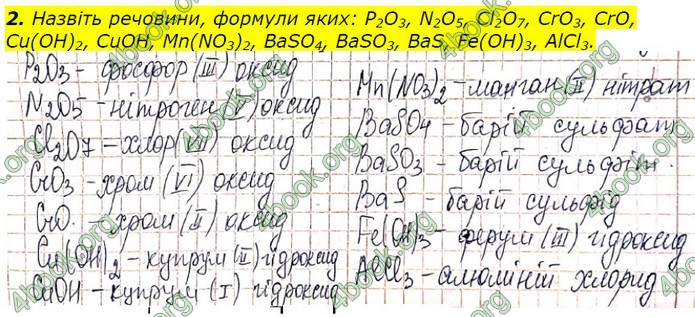 2. Назвіть речовини, формули яких: P₂O₃, N₂O₅, Cl₂O₇, CrO₃, CrO,
Cu(OH)₂, CuOH, Mn(NO₃)₂, BaSO₄, BaSO₃, BaS, Fe(OH)₃, AlCl₃.
P₂O₃ - фосфор (III) оксид
N₂O5 - нітроген (V) оксид
Cl₂O7 - хлор (VII) оксид
CrO₃ - хром (VI) оксид
CrO - хром (II) оксид
Cu(OH)₂ - купрум (II) гідроксид
CuOH - купрум (I) гідроксид
Mn(NO₃)₂ - манган (II) нітрат
BaSO4 - барій сульфат
BaSO₃ - барій сульфіт.
BaS - барій сульфід
Fe(OH)₃ - ферум (III) гідроксид
AlCl₃ - алюміній хлорид
4book.org